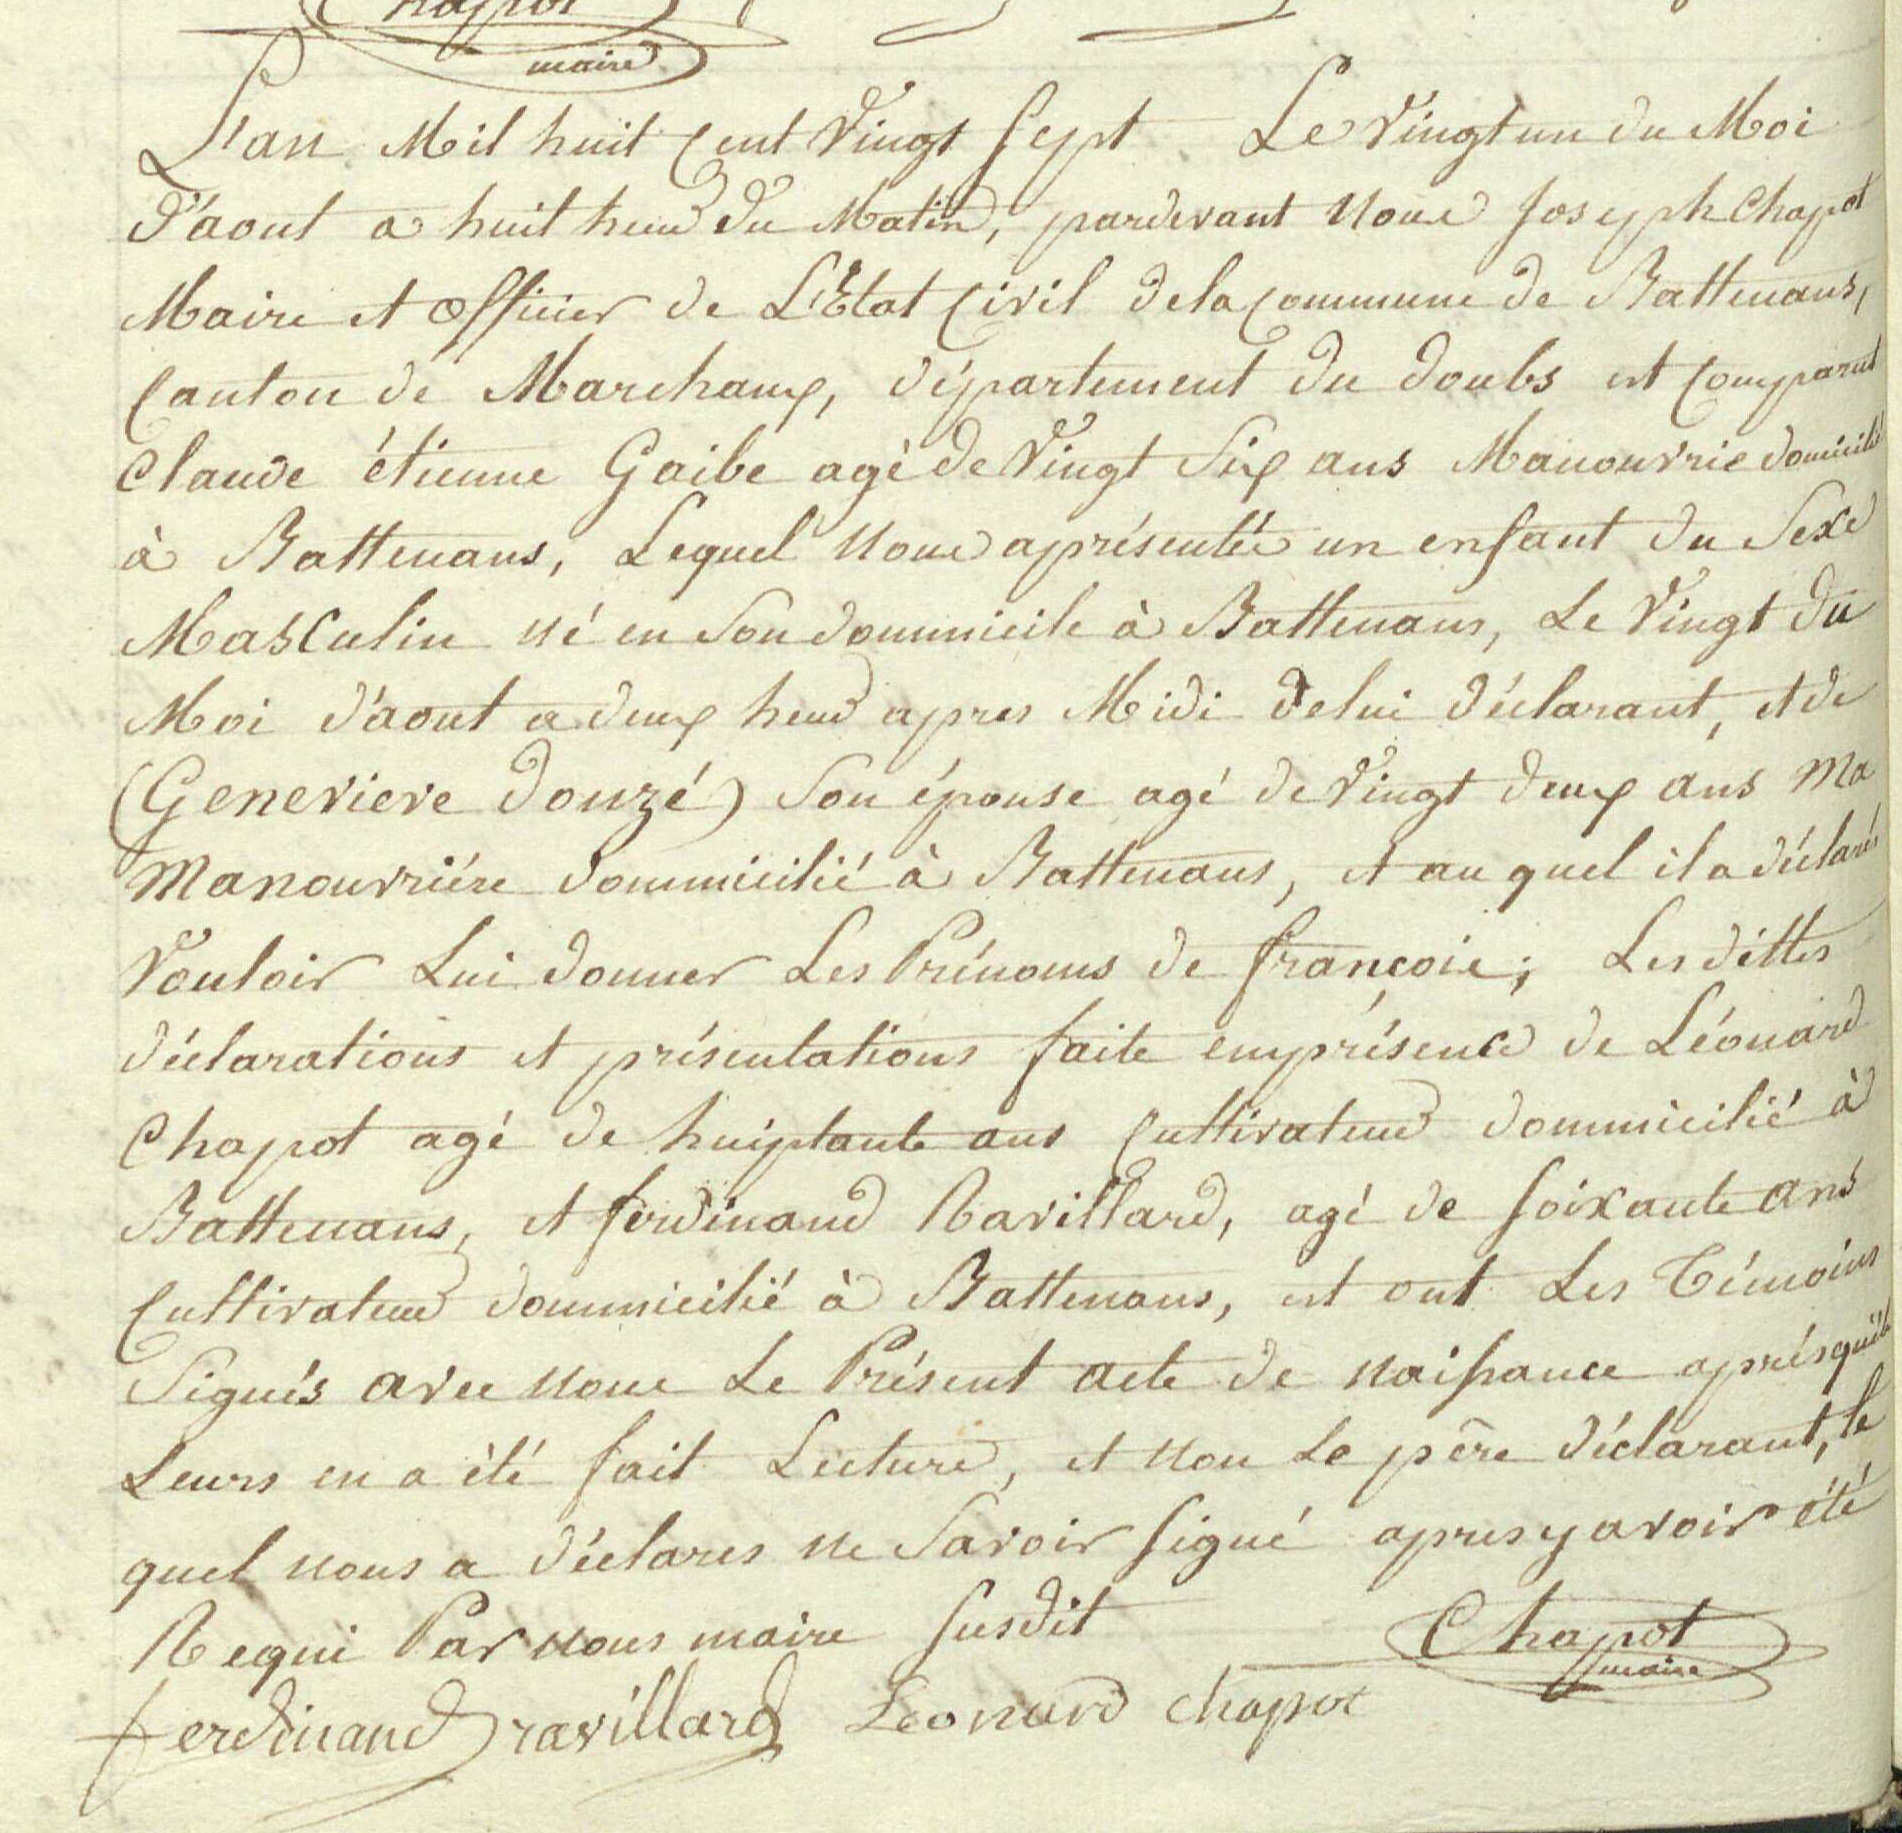 Chapot
maire
L'an Mil huit Cent Vingt Sept Le Vingt un du Moi
D'aout a huit heur du Matin, pardevant Nous Joseph Chapot
Maire et Officier de L'Etat Civil de la Commune de Battenans,
Canton de Marchaux, département du doubs est Comparut
Claude étienne Gaibe agé de Vingt Six ans Manouvrie domicilié
à Battenans, Lequel Nous a présentée un enfant du Sexe
Masculin né en Son dommicile à Battenans, Le Vingt du
Moi d'aout a deux heur apres Midi de lui déclarant, et de
(Genevieve Douzé) Son épouse agé de Vingt deux ans Ma
Manouvriére dommicilié à Battenans, et au quel il a déclarés
Vouloir Lui donner Les Prénoms de françois; Les dittes
déclarations et présentations faite emprésence de Léonard
Chapot agé de huiptante ans Cultivateur dommicilié à
Battenans, et ferdinand Ravillard, agé de soixante ans
Cultivateur dommicilié à Battenans, et ont Les Témoins
Signés avec nous Le Présent acte de naissance aprés
Leurs en a été fait Lecture, et non Le père déclarant, le
quel nous a déclares ne Savoir Signé apres y avoir été
Requi Par nous maire Susdit
Chapot
maire
ferdinand ravillard Leonard chapot